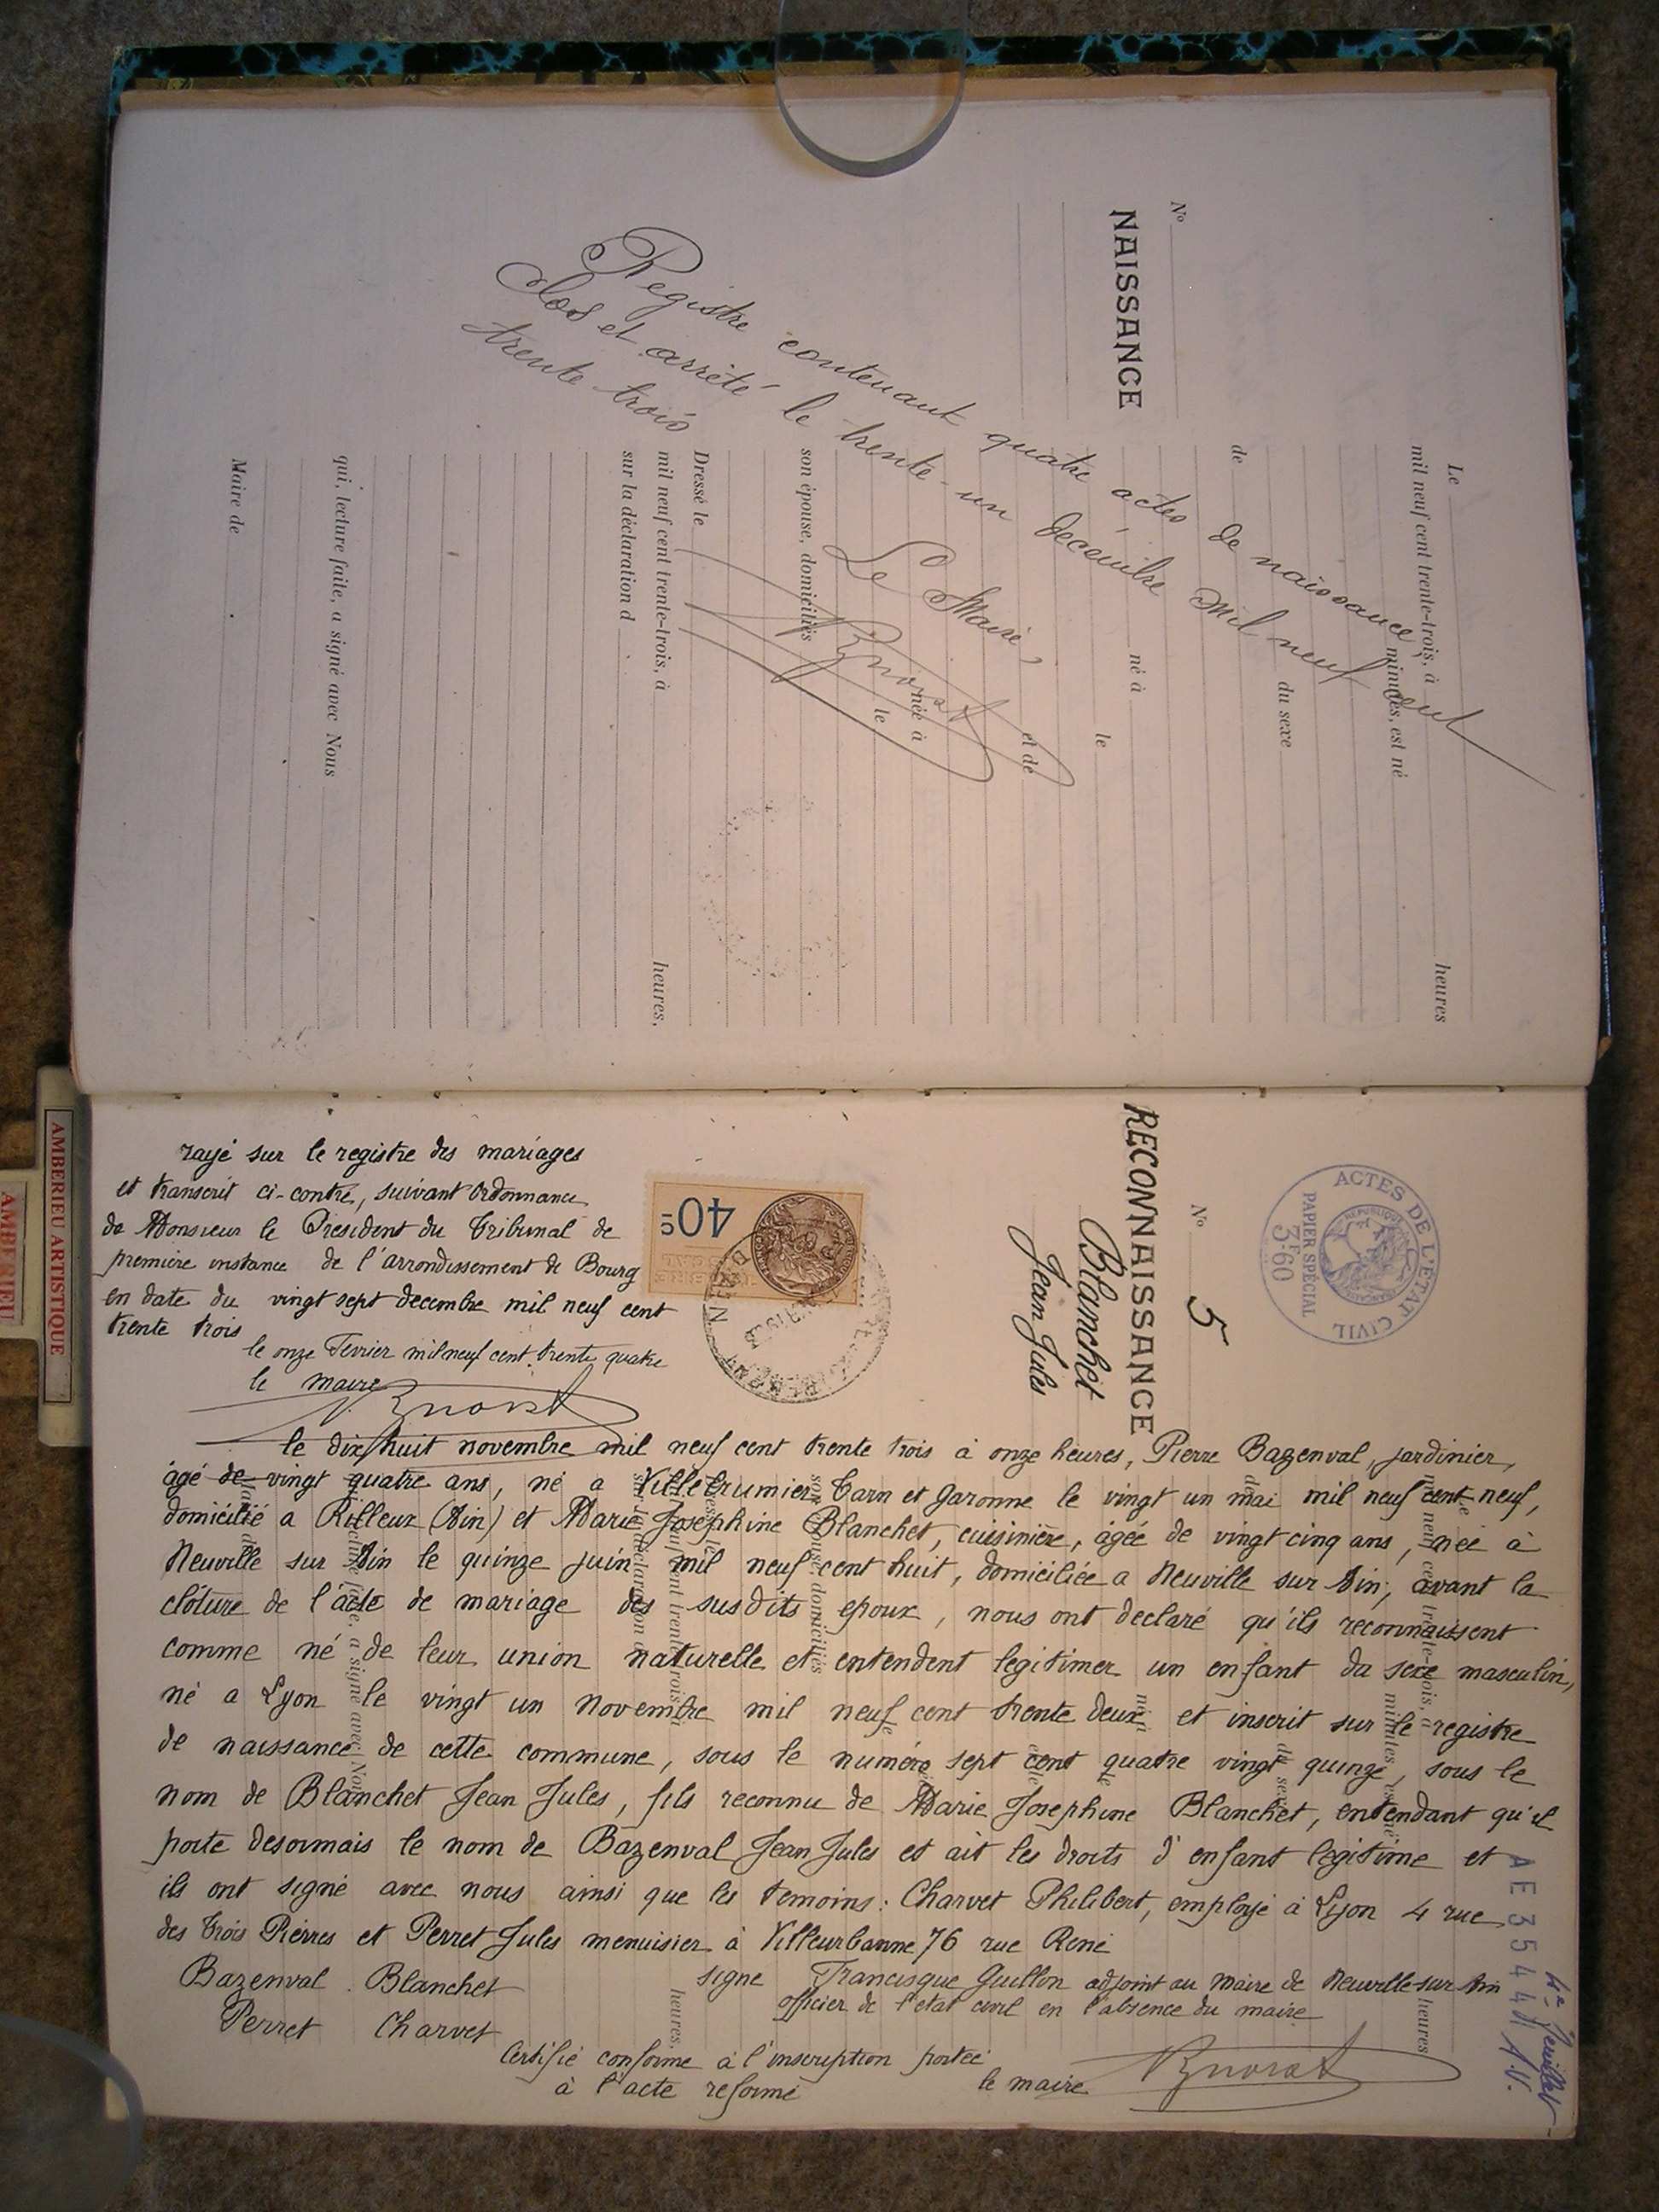 Registre contenant quatre actes de naissance,
clos et arrêté le trente-un décembre mil neuf cent
trente trois
Le Maire,
NAISSANCE
N°
Le
mil neuf cent trente-trois, à
heures
minutes, est né
du sexe
de
né à
le
et de
née à
le
son épouse, domiciliés
Dressé le
mil neuf cent trente-trois, à
heures,
sur la déclaration d
qui, lecture faite, a signé avec Nous
Maire de
ACTES DE L'ÉTAT CIVIL
RÉPUBLIQUE FRANÇAISE
PAPIER SPÉCIAL
3F60
N° 5
RECONNAISSANCE
Blanchet
Jean Jules
40c
rayé sur le registre des mariages
et transcrit ci-contre, suivant Ordonnance
de Monsieur le Président du Tribunal de
première instance de l'arrondissement de Bourg
en date du vingt sept decembre mil neuf cent
trente trois
le onze Fevrier mil neuf cent trente quatre
le maire
le dix huit novembre mil neuf cent trente trois à onze heures, Pierre Bazenval, jardinier,
âgé de vingt quatre ans, né a Villebrumier Tarn et Garonne le vingt un mai mil neuf cent neuf,
domicilié a Rilleux (Ain) et Marie Josephine Blanchet, cuisinière, âgée de vingt cinq ans, née à
Neuville sur Ain le quinze juin mil neuf cent huit, domiciliée a Neuville sur Ain; avant la
clôture de l'acte de mariage des susdits epoux, nous ont declaré qu'ils reconnaissent
comme né de leur union naturelle et entendent legitimer un enfant du sexe masculin,
né a Lyon le vingt un Novembre mil neuf cent trente deux et inscrit sur le registre
de naissance de cette commune, sous le numéro sept cent quatre vingt quinze, sous le
nom de Blanchet Jean Jules, fils reconnu de Marie Josephine Blanchet, entendant qu'il
porte desormais le nom de Bazenval Jean Jules et ait les droits d'enfant légitime et
ils ont signé avec nous ainsi que les temoins: Charvet Philibert, employé à Lyon 4 rue
des Trois Pierres et Perret Jules menuisier à Villeurbanne 76 rue René
Bazenval Blanchet signe Francisque Guillon adjoint au maire de Neuville-sur Ain
Perret Charvet officier de l'etat civil en l'absence du maire
Certifié conforme à l'inscription portée
à l'acte reformé le maire
AE 35440
4e feuillet
AMBERIEU ARTISTIQUE
AMBERIEU